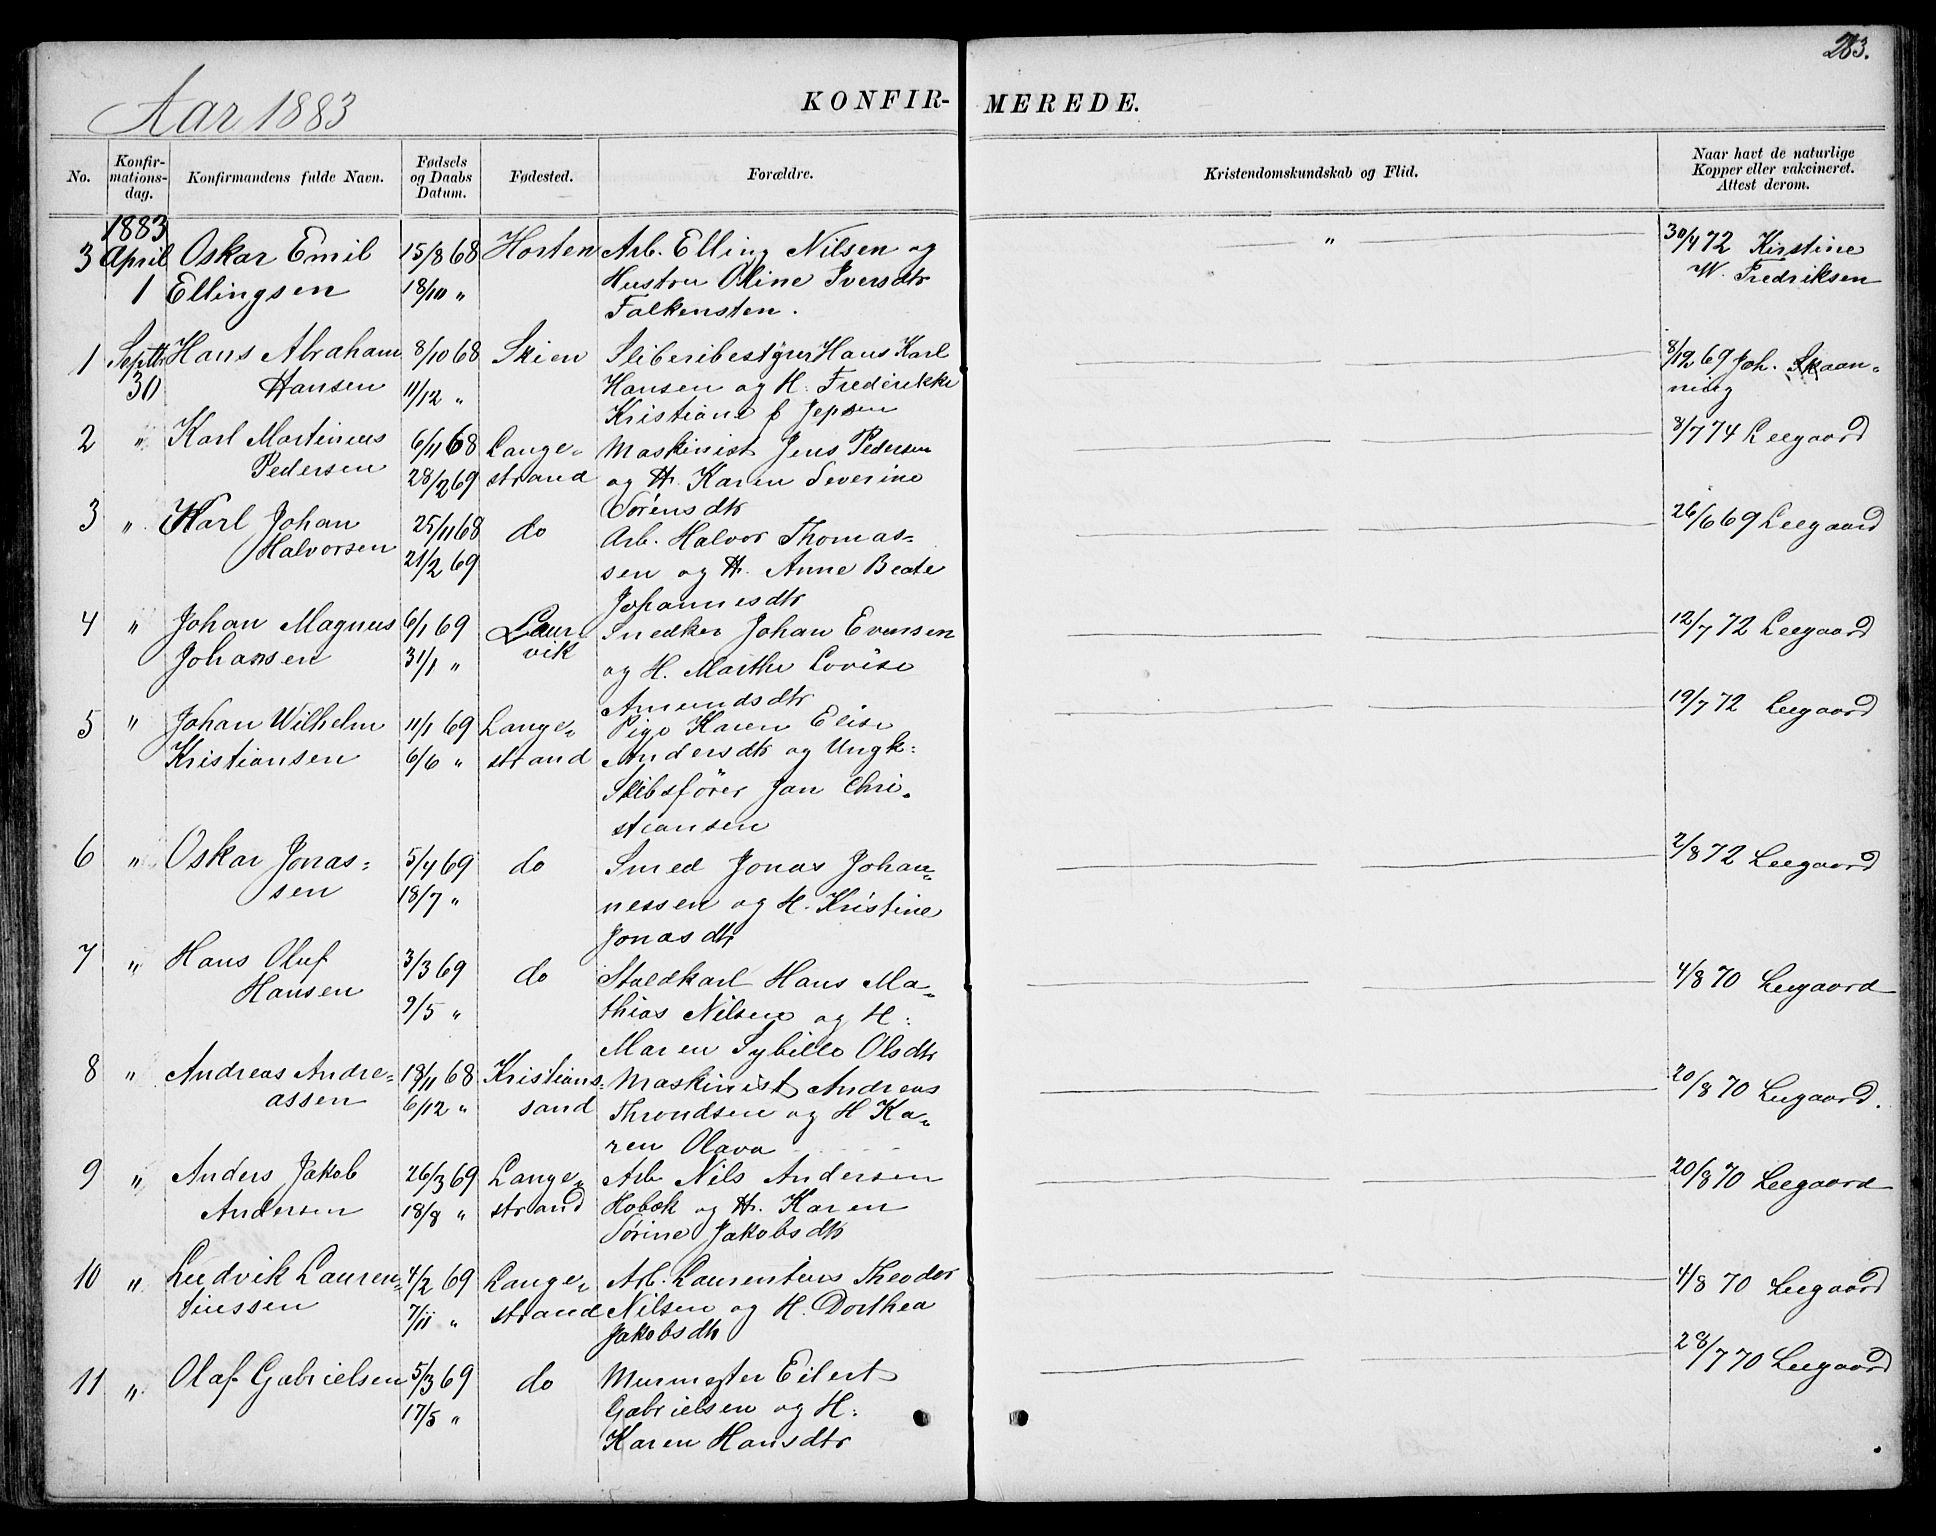 283.
Aar 1883
KONFIR- MEREDE.
No. Konfir-mations-dag. Konfirmandens fulde Navn. Fødsels og Daabs Datum. Fødested. Forældre. Kristendomskundskab og Flid. Naar havt de naturlige Kopper eller vakcineret. Attest derom.
1883
3 April Oskar Emil 15/8 68 Horten Arb. Elling Nilsen og " 30/4 72 Kirstine
1 Ellingsen 18/10 " Hustru Oline Iversdtr W. Fredriksen
Falkensten.
1 Septbr Hans Abraham 8/10 68 Skien Sliberibestyrer Hans Karl 8/12 69 Joh. Skaan-
30 Hansen 11/12 " Hansen og H. Frederikke ning
Kristiane f Jepsen
2 " Karl Martinius 6/11 68 Lange- Maskinist Jens Pedersen 8/7 74 Leegaard
Pedersen 28/2 69 strand og H. Karen Severine
Sørensdtr
3 " Karl Johan 25/11 68 do Arb. Halvor Thomas- 26/6 69 Leegaard
Halvorsen 21/2 69 sen og H. Anne Beate
Johannesdtr
4 " Johan Magnus 6/1 69 Laur- Snedker Johan Evensen 12/7 72 Leegaard
Johansen 31/1 " vik og H. Marthe Lovise
Amundsdtr
5 " Johan Wilhelm 11/1 69 Lange- Pige Karen Elise 19/7 72 Leegaard
Kristiansen 6/6 " strand Andersdtr og Ungk:
Skibsfører Jan Chri-
stiansen
6 " Oskar Jonas- 5/4 69 do Smed Jonas Johan- 2/8 72 Leegaard
sen 18/7 " nessen og H. Kristine
Jonasdtr
7 " Hans Oluf 3/3 69 do Staldkarl Hans Ma- 4/8 70 Leegaard
Hansen 9/5 " thias Nilsen og H:
Maren Sybille Olsdtr
8 " Andreas Andre- 18/11 68 Kristians- Maskinist Andreas 20/8 70 Leegaard.
assen 6/12 " sand Throndsen og H Ka-
ren Olava
9 " Anders Jakob 26/3 69 Lange- Arb Nils Andersen 20/8 70 Leegaard
Andersen 18/8 " strand Hobæk og H. Karen
Sørine Jakobsdtr
10 " Ludvik Lauren- 4/2 69 Lange- Arb. Laurentius Theodor 4/8 70 Leegaard
tiussen 7/11 " strand Nilsen og H. Dorthea
Jakobsdtr
11 " Olaf Gabrielsen 5/3 69 do Murmester Eilert 28/7 70 Leegaard
17/5 " Gabrielsen og H:
Karen Hansdtr